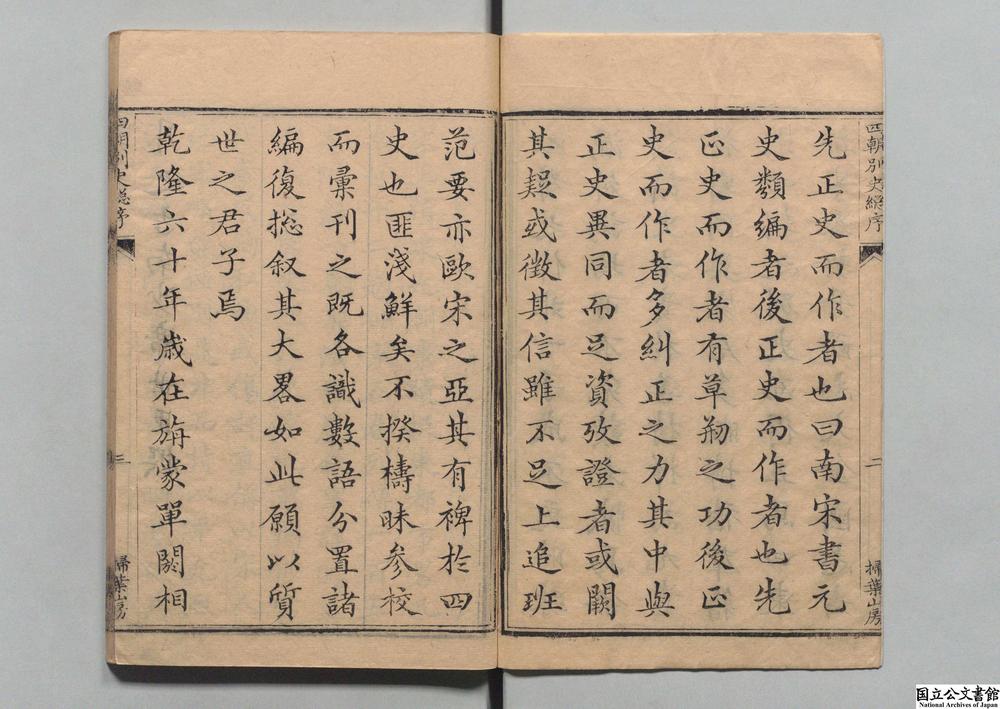 四朝別史總序
二
掃葉山房
先正史而作者也曰南宋書元
史類編者後正史而作者也先
正史而作者有草刱之功後正
史而作者多糾正之力其中與
正史異同而足資攷證者或闕
其疑或徵其信雖不足上追班
范要亦歐宋之亞其有裨於四
史也匪淺鮮矣不揆檮昧參校
而彙刊之既各識數語分置諸
編復揔叙其大畧如此願以質
世之君子焉
乾隆六十年歲在旃蒙單閼相
四朝別史總序
三
掃葉山房
国立公文書館
National Archives of Japan